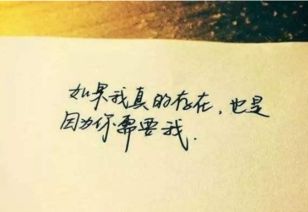 如果我真的存在，也是
因为你需要我.